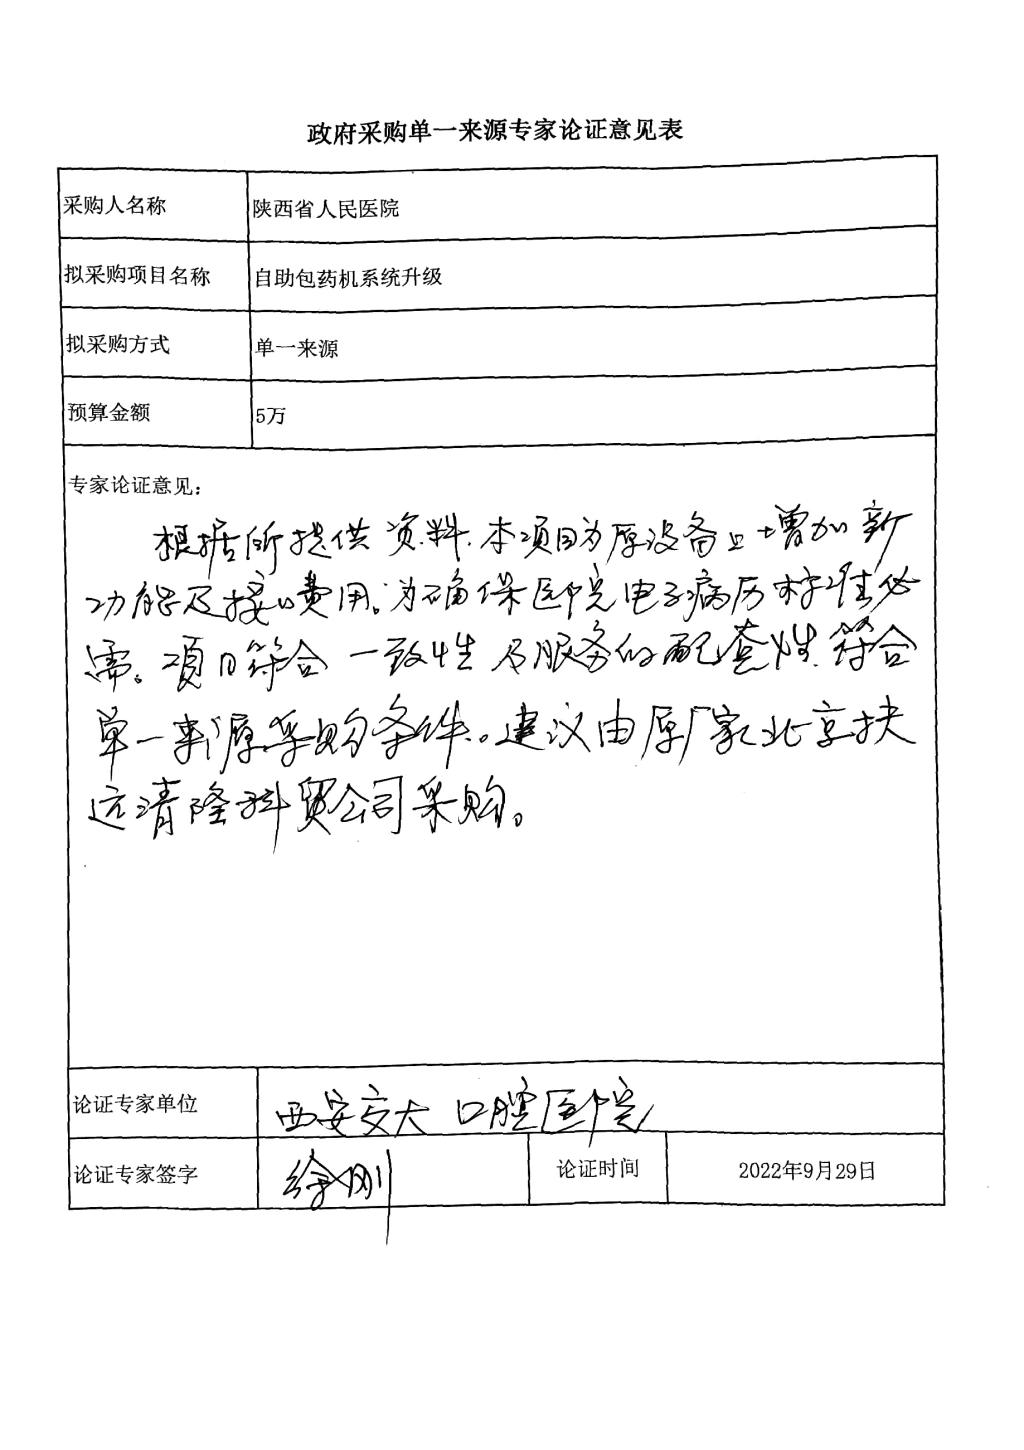 政府采购单一来源专家论证意见表
采购人名称 陕西省人民医院
拟采购项目名称 自助包药机系统升级
拟采购方式 单一来源
预算金额 5万
专家论证意见：
根据所提供资料.本项目为原设备上增加新
功能及接口费用。为确保医院电子病历标准必
需。项目符合一致性及服务的配套性.符合
单一来源采购条件。建议由原厂家北京扶
远清隆科贸公司采购。
论证专家单位 西安交大口腔医院
论证专家签字 徐刚 论证时间 2022年9月29日